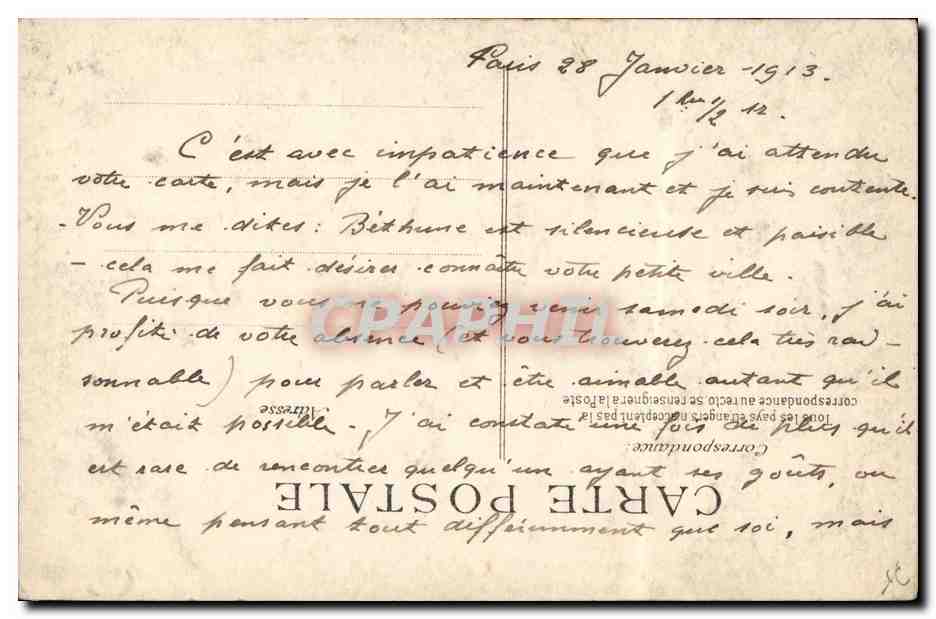 Paris 28 Janvier -1913.
1 heure 1/2 
C'est avec impatience que j'ai attendu
votre carte, mais je l'ai maintenant et je suis contente.
-Vous me dites : Béthune est silencieuse et paisible
- cela me fait désirer connaître votre petite ville.
Puisque vous ne pouviez venir samedi soir, j'ai
profité de votre absence (et vous trouverez cela très rai-
sonnable) pour parler et être aimable autant qu'il
m'était possible - J'ai constaté une fois de plus qu'il
est rare de rencontrer quelqu'un ayant ses goûts, ou
même pensant tout différemment que soi, mais
CARTE POSTALE
Correspondance:
Tous les pays étrangers n'acceptent pas la
correspondance au recto se renseigner à la Poste
Adresse
CPAPHIL